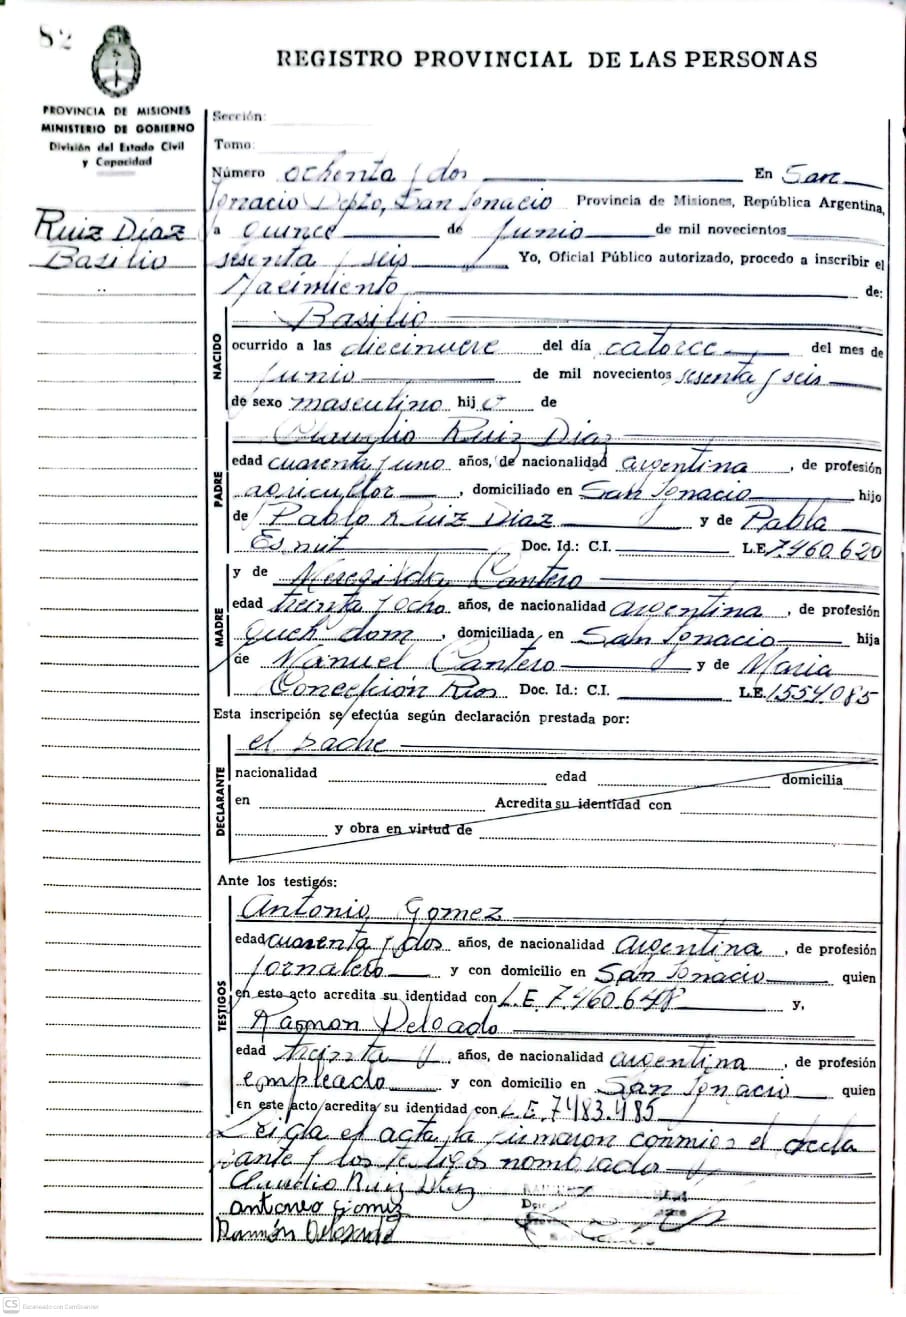 82
REGISTRO PROVINCIAL DE LAS PERSONAS
PROVINCIA DE MISIONES
MINISTERIO DE GOBIERNO
División del Estado Civil
y Capacidad
Ruiz Díaz
Basilio
Sección:
Tomo:
Número ochenta y dos En San
Ignacio Dpto, San Ignacio Provincia de Misiones, República Argentina,
a quince de Junio de mil novecientos
sesenta y seis Yo, Oficial Público autorizado, procedo a inscribir el
Nacimiento de:
NACIDO
Basilio
ocurrido a las diecinueve del día catorce del mes de
Junio de mil novecientos sesenta y seis
de sexo masculino hijo de
PADRE
Claudio Ruiz Diaz
edad cuarenta y uno años, de nacionalidad argentina, de profesión
agricultor, domiciliado en San Ignacio hijo
de Pablo Ruiz Diaz y de Pabla
Doc. Id.: C.I. L.E. 7.460.620
MADRE
y de Cantero
edad treinta y ocho años, de nacionalidad argentina, de profesión
dom, domiciliada en San Ignacio hija
de Manuel Cantero y de Maria
Concepción Rios Doc. Id.: C.I. L.E. 1.554.085
Esta inscripción se efectúa según declaración prestada por:
DECLARANTE
el padre
nacionalidad edad domicilia
en Acredita su identidad con
y obra en virtud de
Ante los testigós:
TESTIGOS
Antonio Gomez
edad cuarenta y dos años, de nacionalidad argentina, de profesión
Jornalero y con domicilio en San Ignacio quien
en esto acto acredita su identidad con L.E. 7.460.648 y,
Ramon Delgado
edad treinta años, de nacionalidad argentina, de profesión
empleado y con domicilio en San Ignacio quien
en este acto acredita su identidad con L.E. 7483.485
Leida el acta, la firmaron conmigo el decla
rante y los testigos nombrados
Claudio Ruiz Diaz
antoneo gomez
Ramón
CS Escaneado con CamScanner